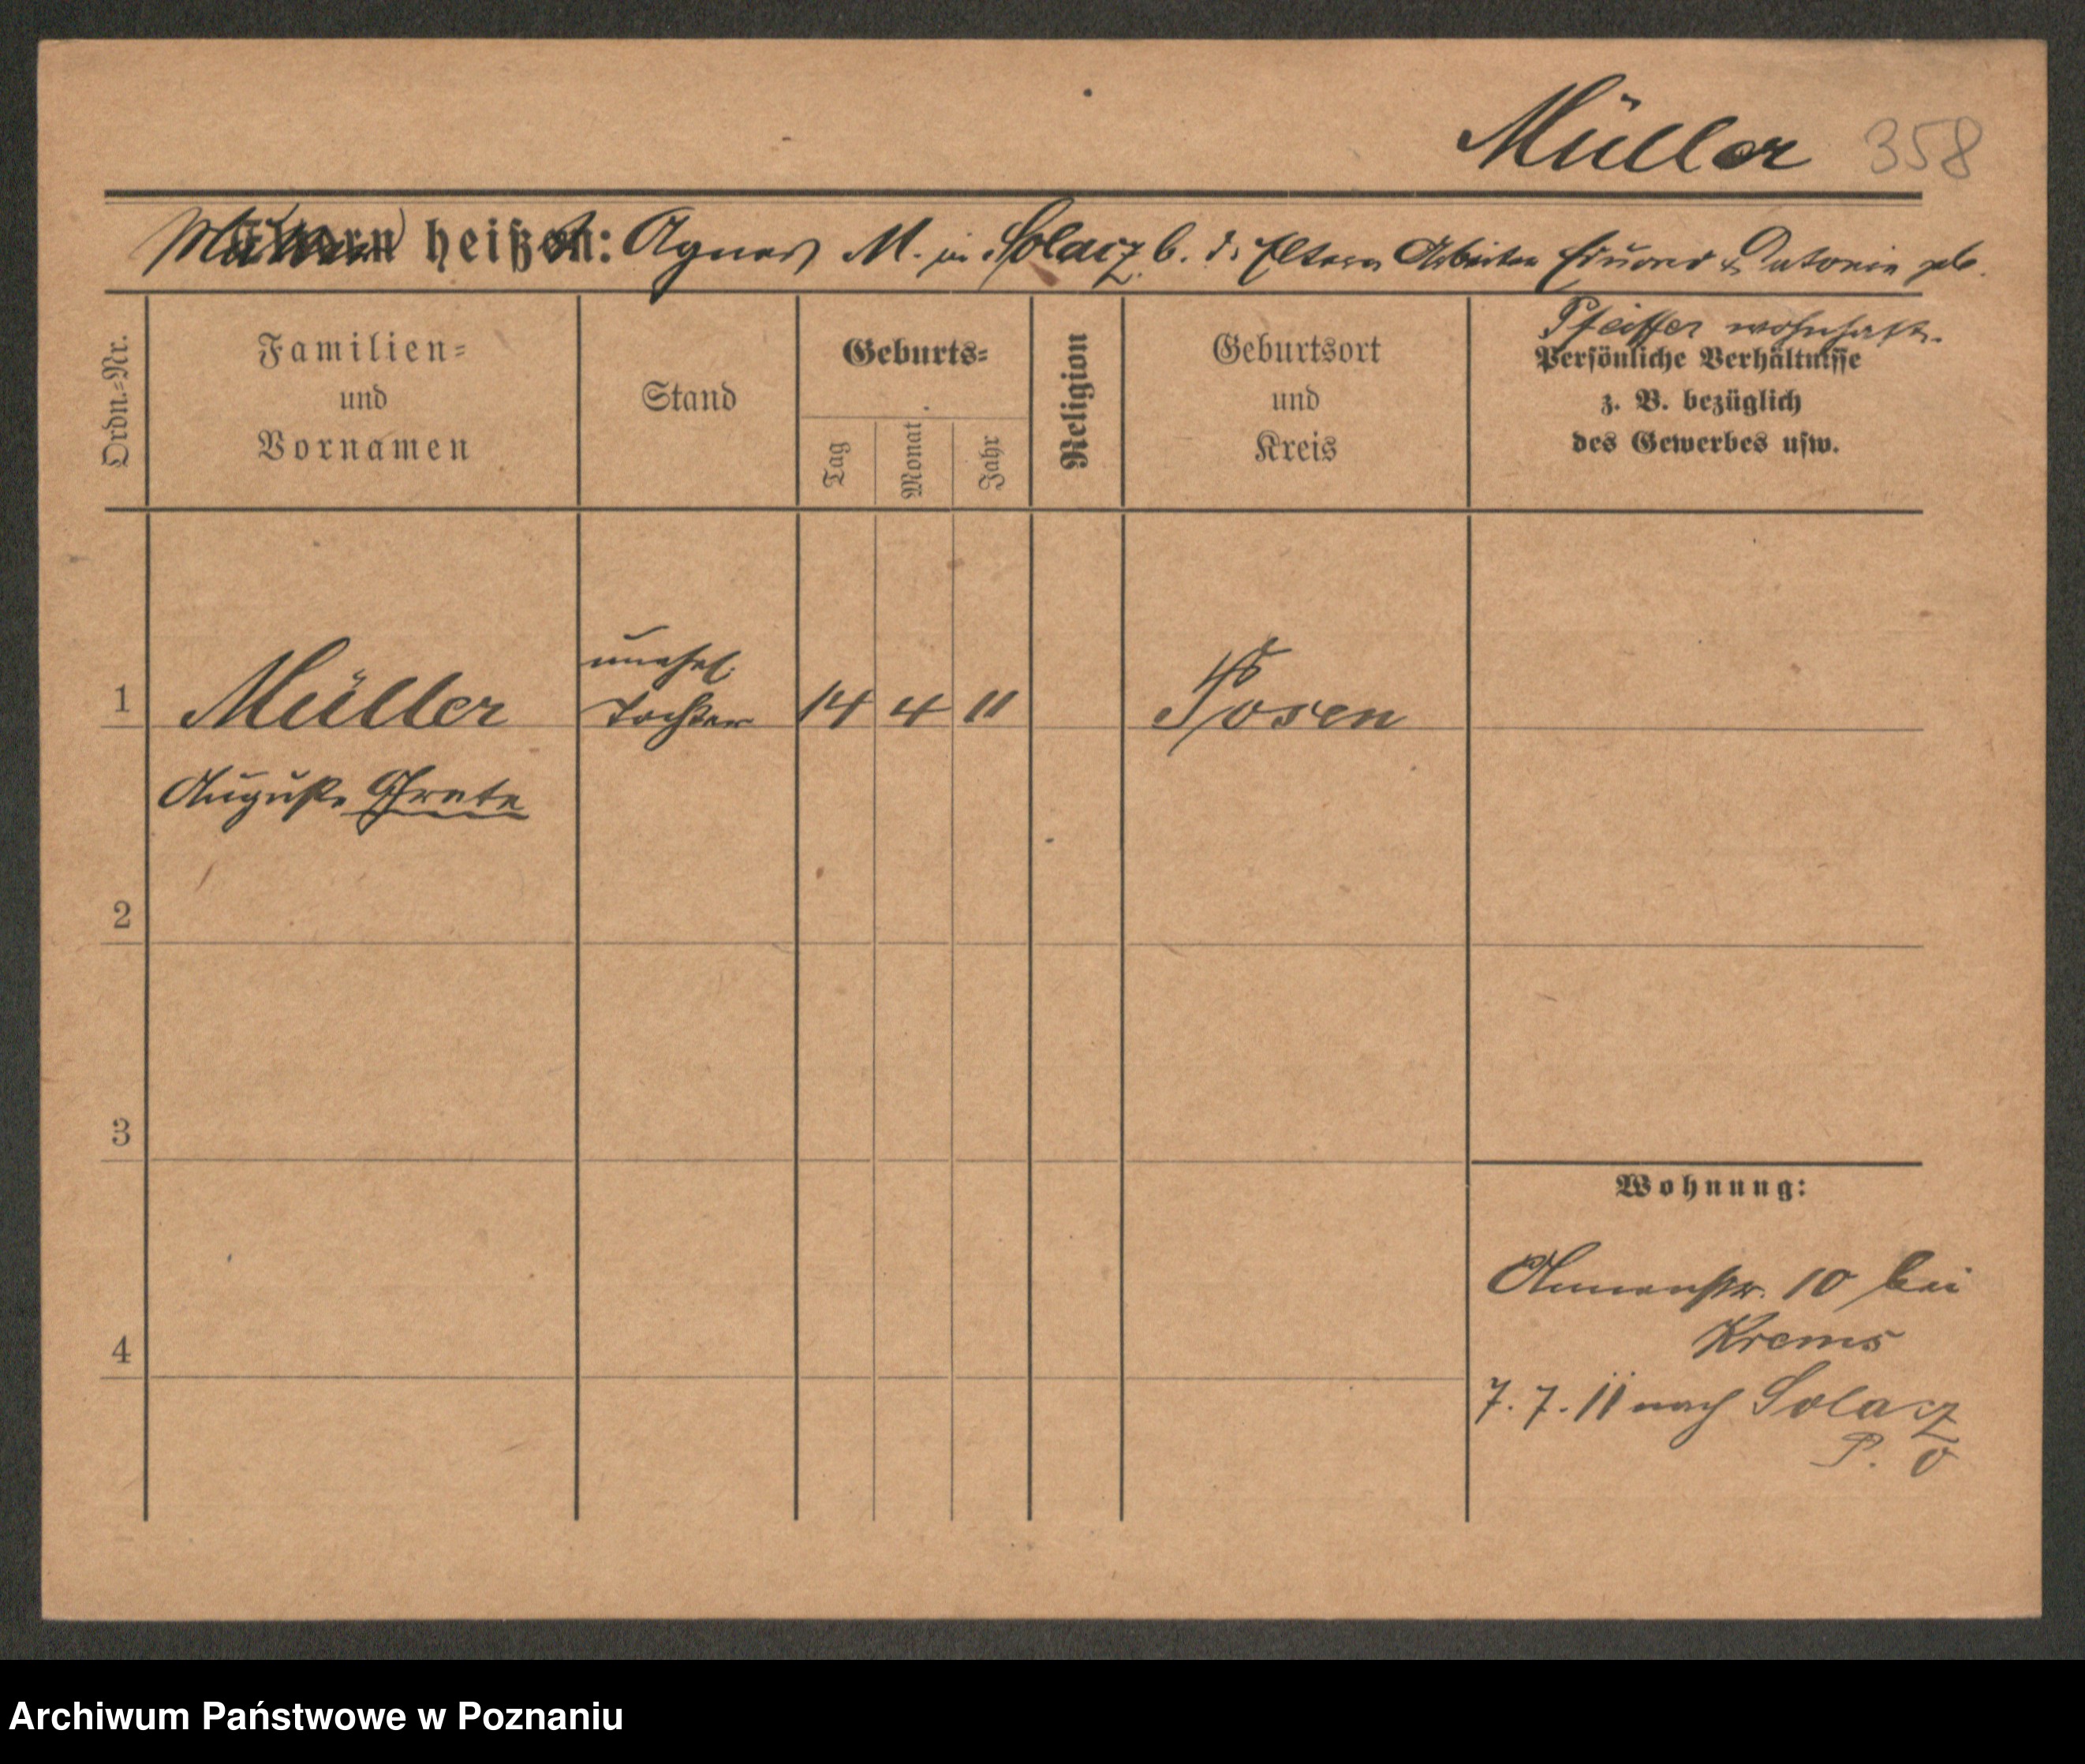 Müller 358
Mutter heißt: Agnes M. in Solacz b. d. Eltern Arbeiter Eduard & Antonie geb.
Pfeiffer wohnhaft.
Ordn.=Nr.
Familien=
und
Vornamen
Stand
Geburts=
Tag
Monat
Jahr
Religion
Geburtsort
und
Kreis
Persönliche Verhältnisse
z. B. bezüglich
des Gewerbes usw.
1 Müller unehel. Tochter 14 4 11 Posen
Auguste Grete
2
3
4
Wohnung:
10 bei
Krems
7. 7. 11 nach Solacz
P. O